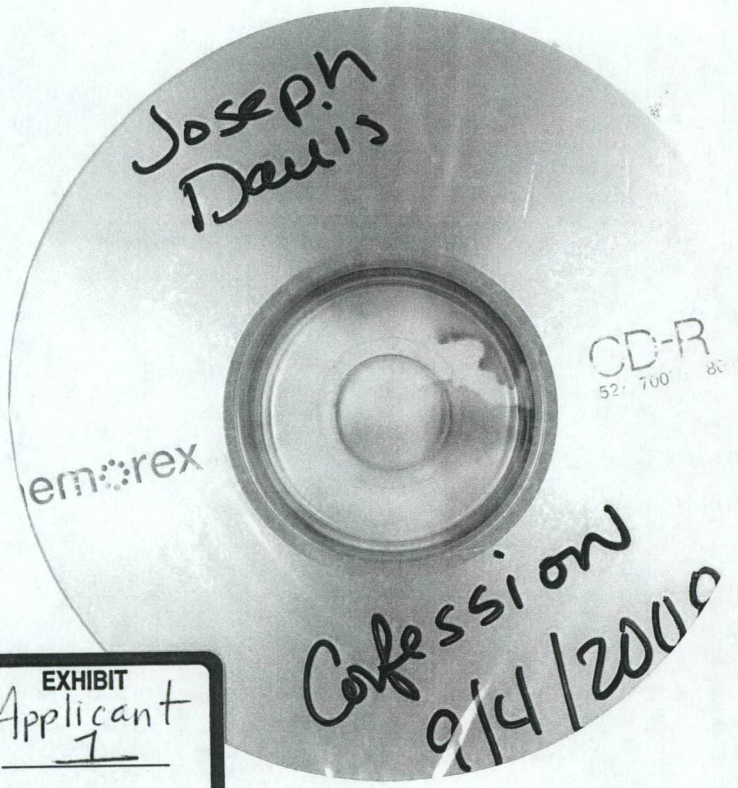 Joseph
Davis
CD-R
52 700
emorex
Confession
EXHIBIT
Applicant
1